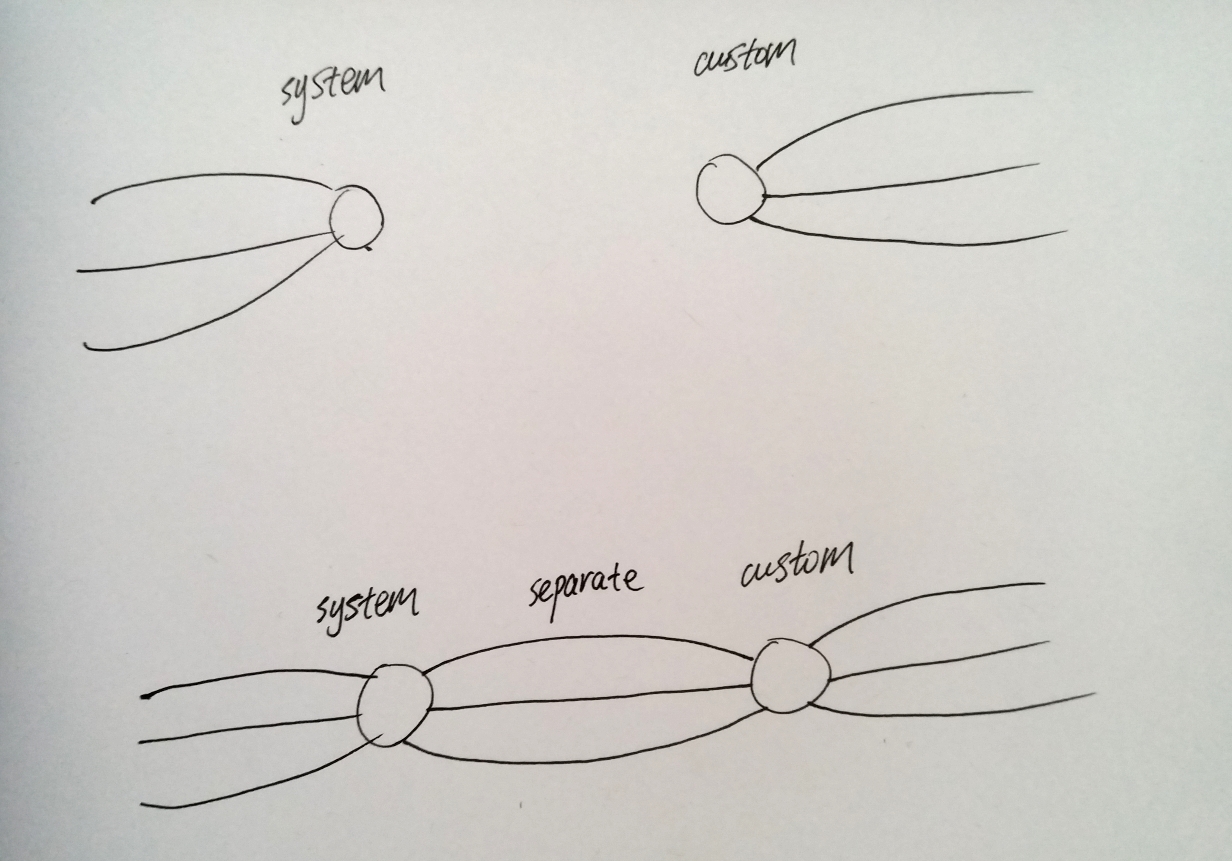 system
custom
system
separate
custom